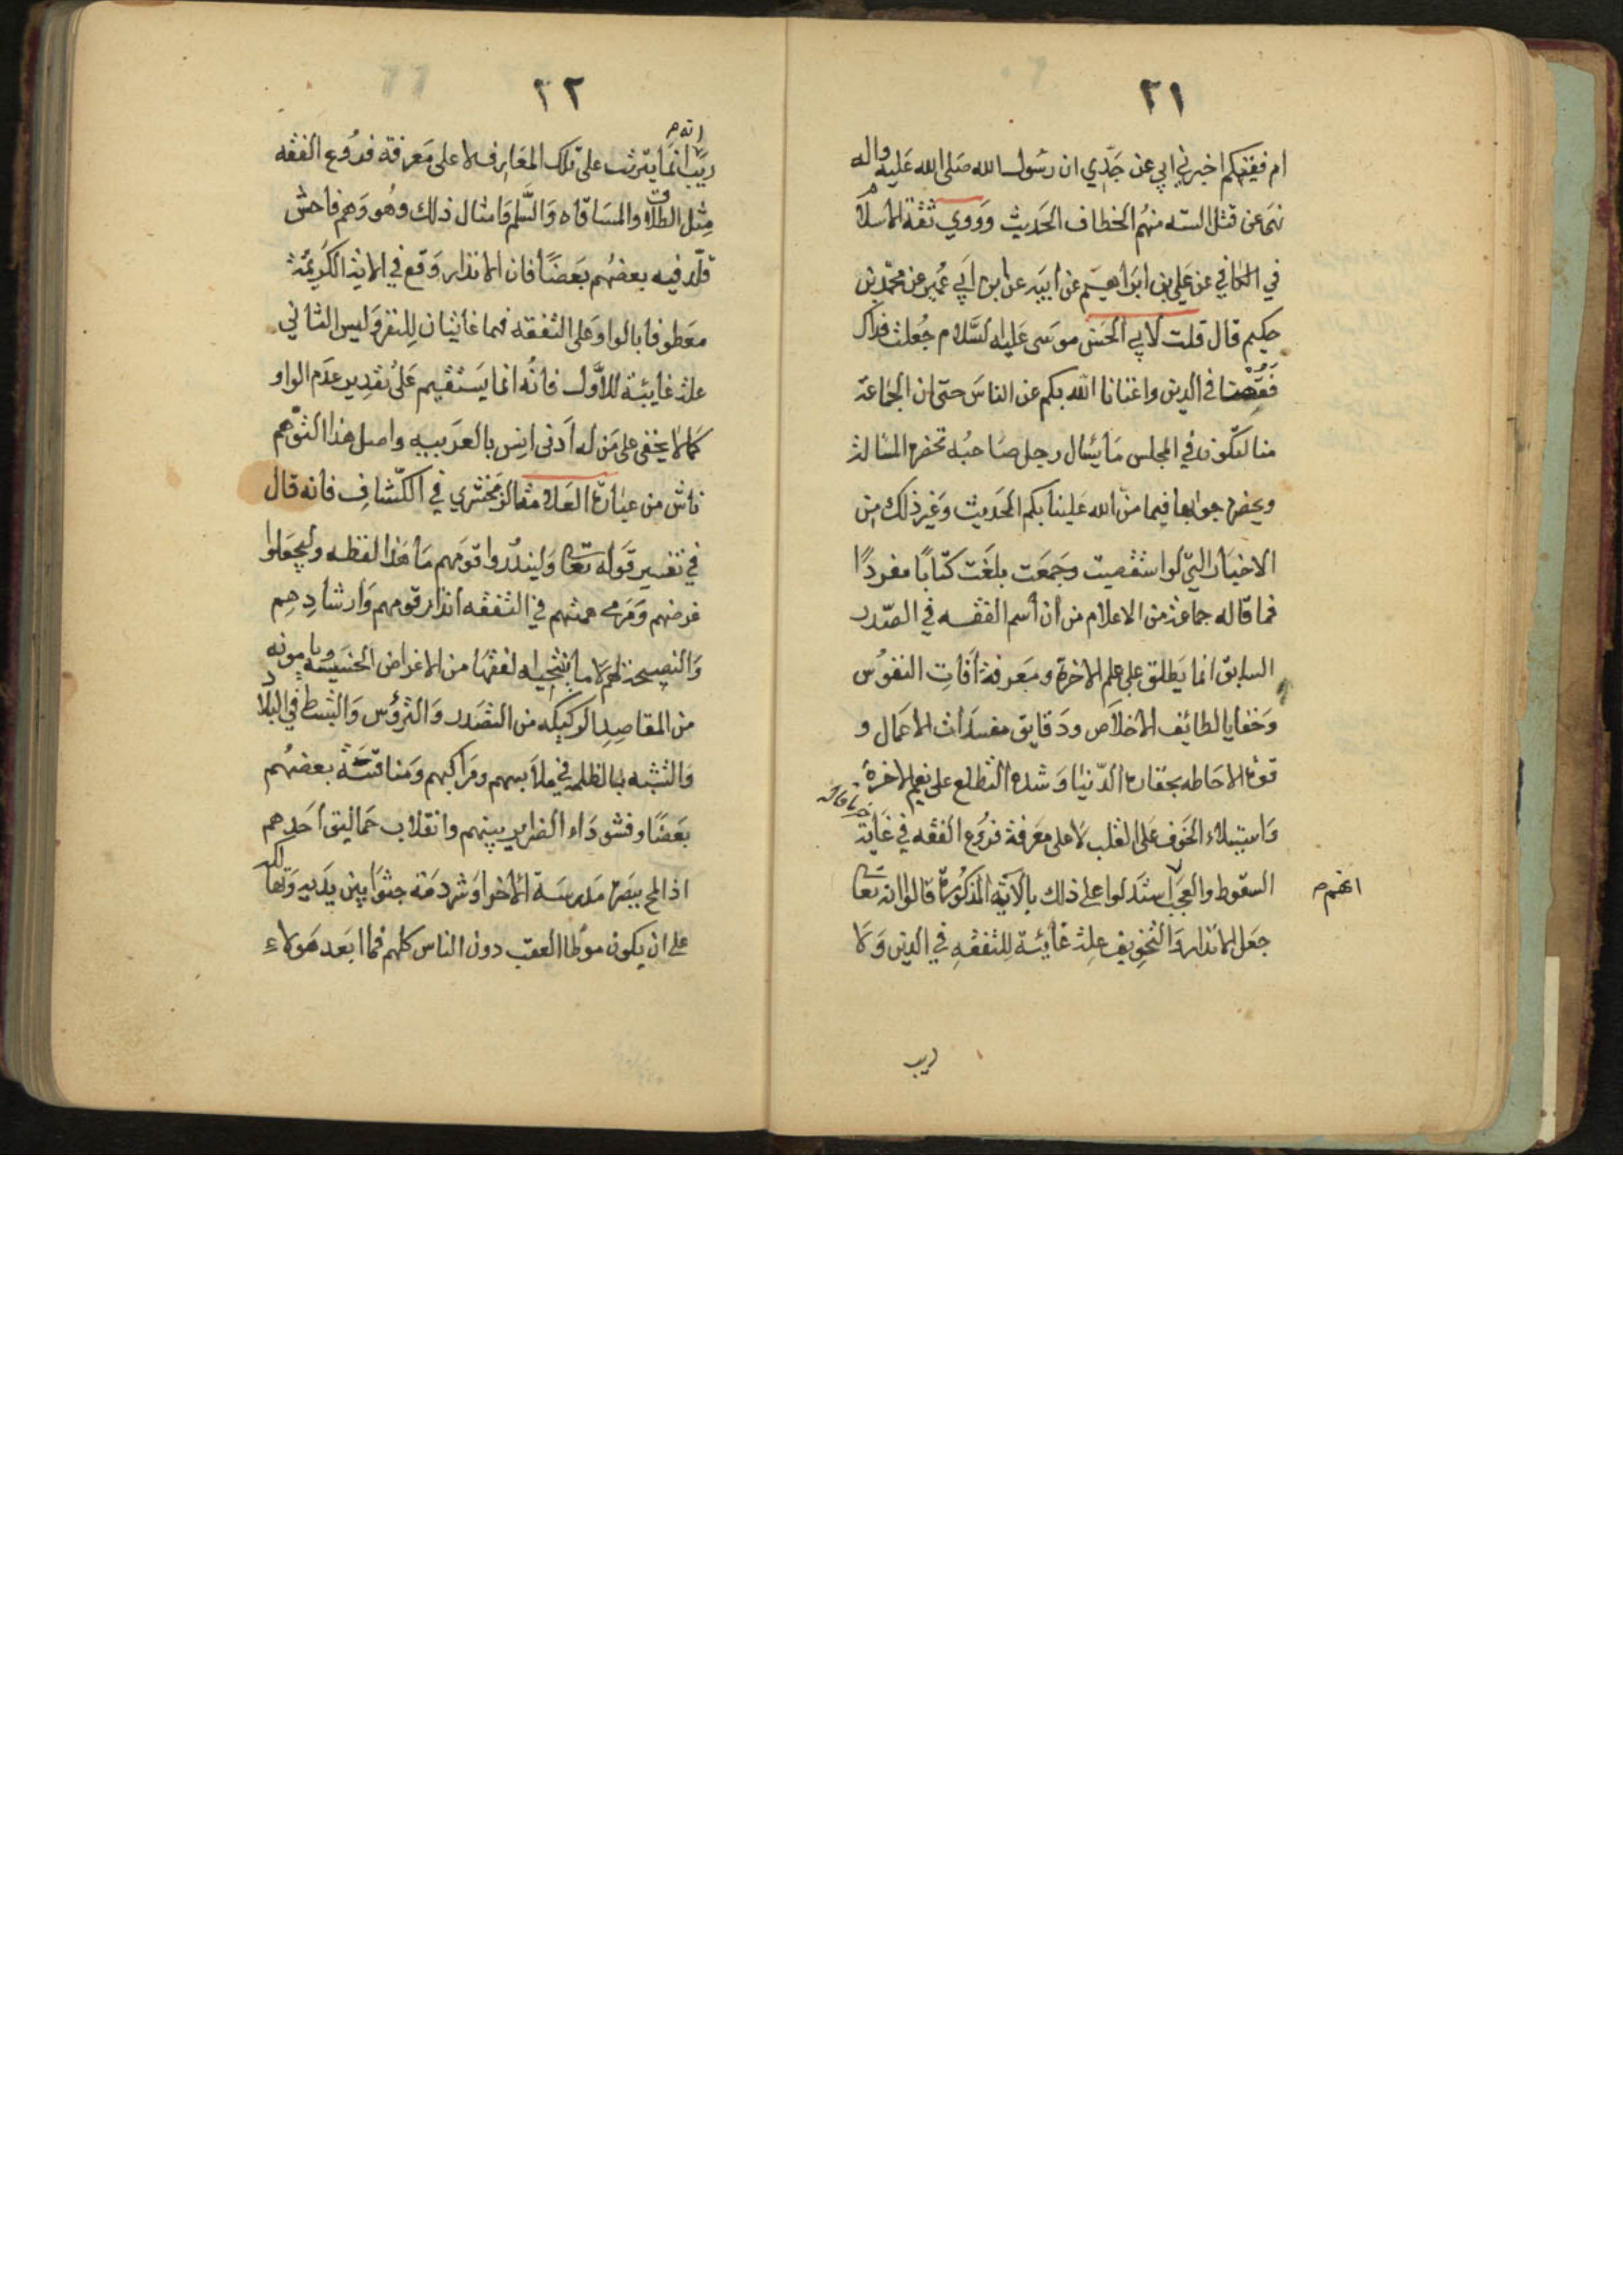 ٢١
ام فقيهكم اخبرني ابي عن جدّي ان رسول الله صلى الله عليه واله
نهى عن قتل السته منهم الخطاف الحديث وروي ثقة الاسلام
في الكافي عن علي بن ابراهيم عن ابيه عن ابن ابي عمير عن محمد بن
حكيم قال قلت لابي الحسن موسى عليه السلام جعلت فداك
فقهنا في الدين واغنانا الله بكم عن الناس حتى ان الجماعة
منا لتكون في المجلس ما يسال رجل صاحبه تحضره المسالة
ويحضره جوابها فيما من الله علينا بكم الحديث وغير ذلك من
الاخبار التي لو استقصيت وجمعت بلغت كتابا مفردًا
فما قاله جماعة من الاعلام من ان اسم الفقه في الصدر
السابق انما يطلق على علم الاخرة ومعرفة افات النفوس
وخفايا لطائف الاخلاص ودقايق مفسدات الاعمال و
قوة الاحاطه بحقارة الدنيا وشدة التطلع على نعيم الاخرة
واستيلاء الخوف على القلب لا على معرفة فروع الفقه في غاية
السقوط والعجب استدلوا على ذلك بالآية المذكورة قالوا انه تعا
انهم
جعل الانذار والتخويف علة غائية للتفقه في الدين ولا
ريب
٢٢
انه
ريب انما يترتب على تلك المعارف لا على معرفة فروع الفقه
مثل الطلاق والمساقاه والسلم وامثال ذلك وهو وهم فاحش
قلد فيه بعضهم بعضًا فان الانذار وقع في الاية الكريمة
معطوفا بالواو على التفقه فهما غايتان للنفر وليس الثاني
علة غايئة للاول فانه انما يستقيم على تقدير عدم الواو
كما لا يخفى على من له ادنى انس بالعربيه واصل هذا التوهم
ناش من عبارة العلامة الزمخشري في الكشاف فانه قال
في تفسير قوله تعا ولينذروا قومهم ما هذا لفظه وليجعلوا
غرضهم ومرمى همتهم في التفقه انذار قومهم وارشادهم
والنصيحة لهم لا ما ينتجيه الفقها من الاغراض الخسيسة ويامونه
من المقاصد الركيكه من التصدر والترؤس والتبسط في البلاد
والتشبه بالظلمة في ملابسهم ومراكبهم ومنافسة بعضهم
بعضًا وفشو داء الضراير بينهم وانقلاب حماليق احدهم
اذا لمح ببصره مدرسة لآخر او شرذمة جثوا بين يديه وتهالكه
على ان يكون موطا العقب دون الناس كلهم فما ابعد هولاء